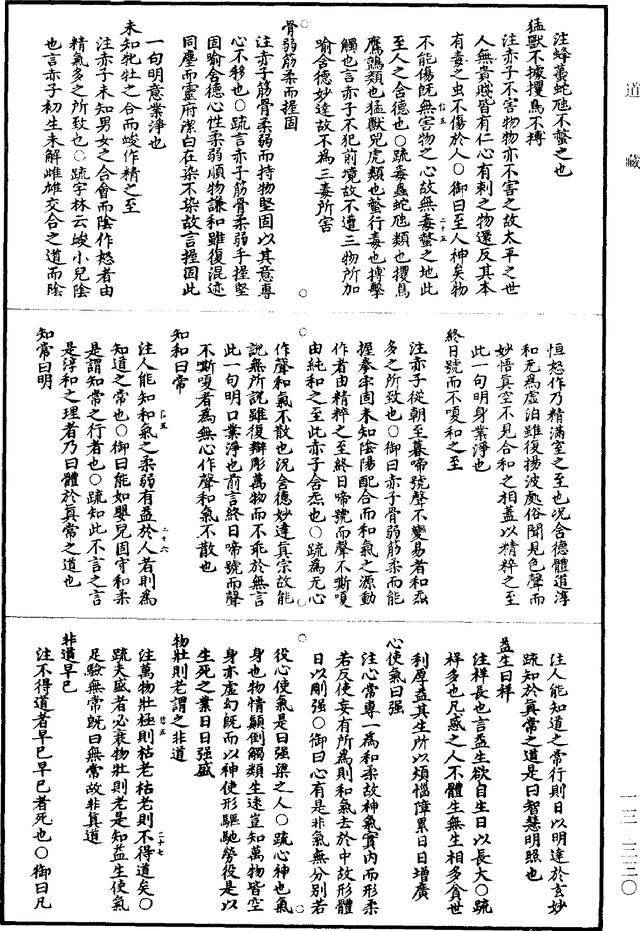 道藏
一三—三三〇
注蜂蠆蛇虺不螫之也
猛獸不據攫鳥不搏
注赤子不害物物亦不害之故太平之世
人無貴賤皆有仁心有刺之物還反其本
有毒之虫不傷於人〇御曰至人神矣物
不能傷既無害物之心故無毒螫之地此
至人之含德也〇疏毒蟲蛇虺類也攫鳥
鷹鸇類也猛獸兕虎類也螫行毒也搏擊
觸也言赤子不犯前境故不遭三物所加
喻含德妙達故不為三毒所害
骨弱筋柔而握固
注赤子筋骨柔弱而持物堅固以其意專
心不移也〇疏言赤子筋骨柔弱手握堅
固喻含德心性柔弱順物謙和雖復混迹
同塵而靈府潔白在染不染故言握固此
一句明意業淨也
未知牝牡之合而峻作精之至
注赤子未知男女之合會而陰作怒者由
精氣多之所致也〇疏字林云峻小兒陰
也言赤子初生未解雌雄交合之道而陰
恒怒作乃精滿室之至也況含德體道淳
和无為虛泊雖復揚波處俗聞見色聲而
妙悟真空不見合和之相蓋以精粹之至
此一句明身業淨也
終日號而不嗄和之至
注赤子從朝至暮啼號聲不變易者和炁
多之所致也〇御曰赤子骨弱筋柔而能
握拳牢固未知陰陽配合而和氣之源動
作者由精粹之至終日啼號而聲不嘶嗄
由純和之至此赤子含炁也〇疏為无心
作聲和氣不散也況含德妙達真宗故能
說無所說雖復辯彫萬物而不乖於無言
此一句明口業淨也前言終日啼號而聲
不嘶嗄者為無心作聲和氣不散也
知和曰常
注人能知和氣之柔弱有益於人者則為
知道之常也〇御曰能如嬰兒固守和柔
是謂知常之行者也〇疏知此不言之言
是淳和之理者乃曰體於真常之道也
知常曰明
注人能知道之常行則日以明達於玄妙
疏知於真常之道是曰智慧明照也
益生曰祥
注祥長也言益生欲自生日以長大〇疏
祥多也凡惑之人不體生無生相多貪世
利厚益其生所以煩惱障累日日增廣
心使氣曰强
注心當專一為和柔故神氣實內而形柔
若反使妄有所為則和氣去於中故形體
日以剛强〇御曰心有是非氣無分別若
役心使氣是曰强梁之人〇疏心神也氣
身也物情顛倒觸類生迷豈知萬物皆空
身亦虛幻既而以神使形驅馳勞役是以
生死之業日日强盛
物壯則老謂之非道
注萬物壯極則枯老枯老則不得道矣〇
疏夫盛者必衰物壯則老是知益生使氣
足驗無常既曰無常故非真道
非道早已
注不得道者早已早已者死也〇御曰凡